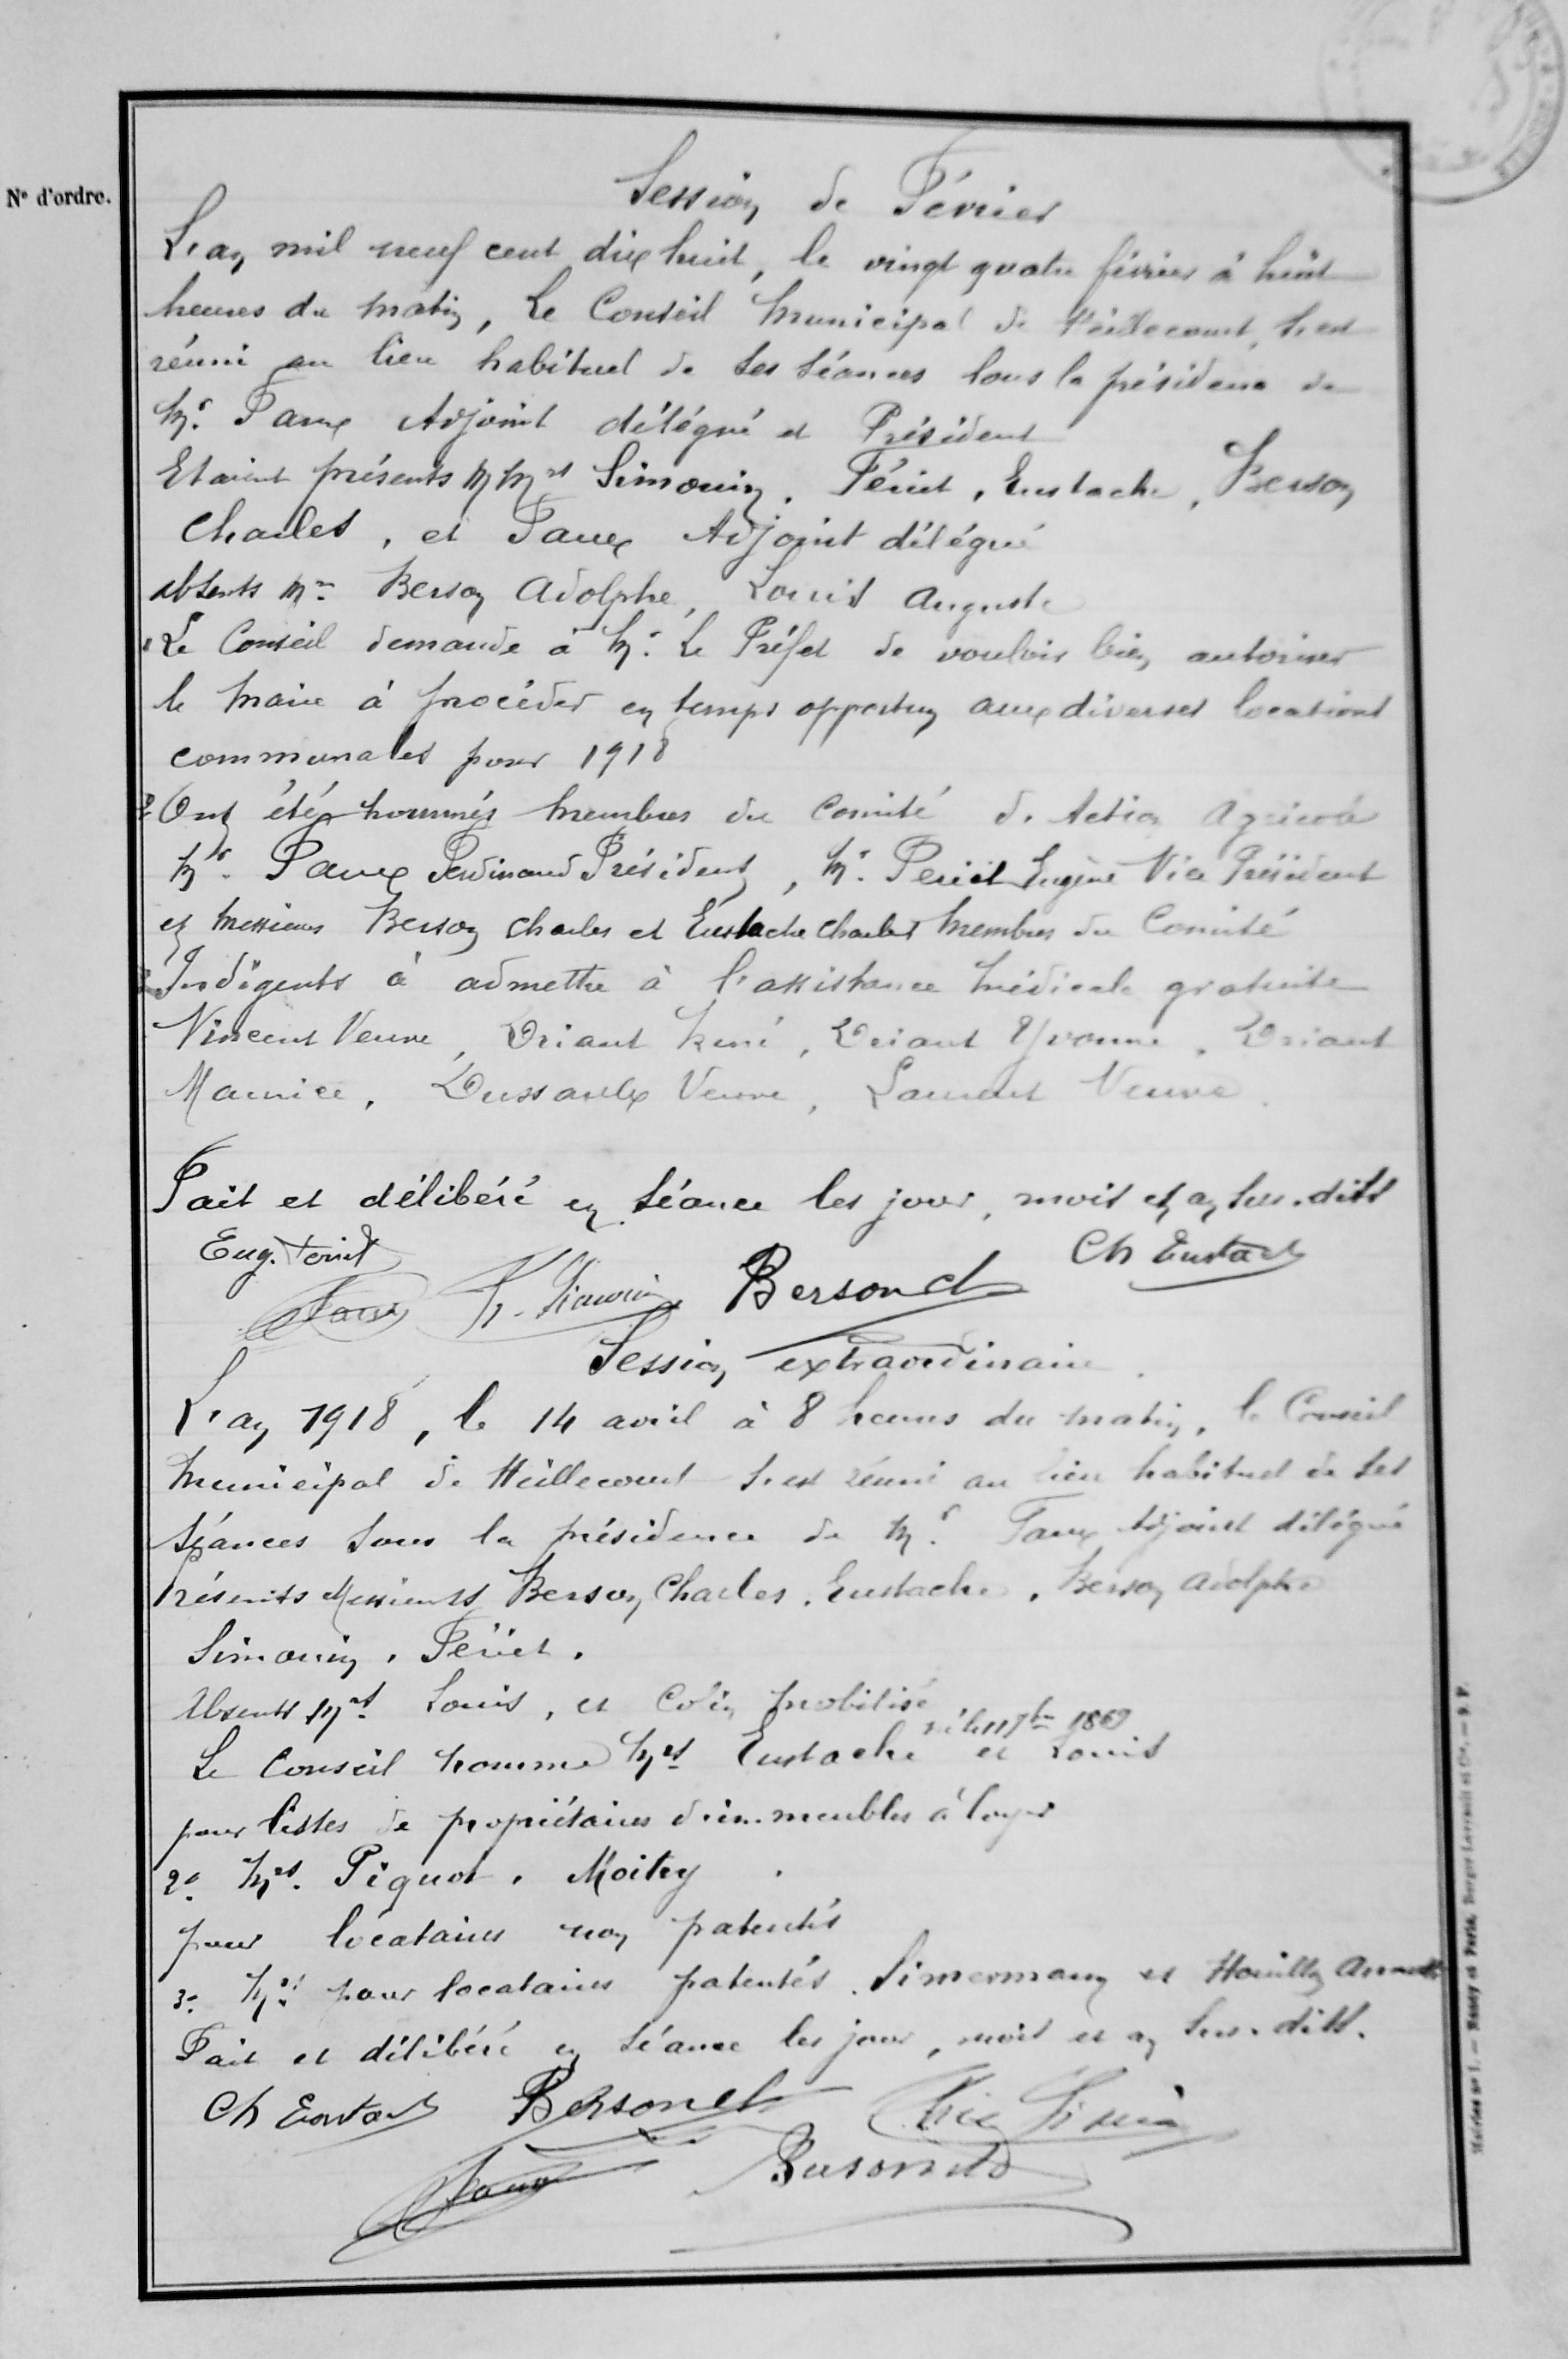 N° d'ordre.
Session de Février
L'an mil neuf cent dix huit, le vingt quatre février à huit
heures du matin, Le Conseil Municipal de Huillecourt, s'est
réuni au lieu habituel de ses séances sous la présidence de
Mr. Faux Adjoint délégué et Président
Etaient présents MMrs Simonin, Fériet, Eustache, Berson
Charles, et Faux Adjoint délégué
absents Mrs Berson Adolphe, Louis Auguste
1 Le Conseil demande à Mr. Le Préfet de vouloir bien autoriser
le Maire à procéder en temps opportun aux diverses locations
communales pour 1918
2 Ont été nommés membres du Comité d'Action Agricole
Mr. Faux Ferdinand Président, Mr. Feriet Eugène Vice Président
et Messieurs Berson Charles et Eustache Charles Membres du Comité
3 Indigents à admettre à l'assistance médicale gratuite
Vincent Veuve, Driant René, Driant Yvonne, Driant
Maurice, Dussaulx Veuve, Laurent Veuve.
Fait et délibéré en séance les jour, mois et an sus-dits
Eug. Feriet Ch Eustache
Faux Simonin Berson ch
Session extraordinaire.
L'an 1918, le 14 avril à 8 heures du matin, le Conseil
Municipal de Huillecourt s'est réuni au lieu habituel de ses
séances sous la présidence de Mr. Faux Adjoint délégué
Présents Messieurs Berson Charles, Eustache, Berson Adolphe
Simonin, Fériet.
Absents Mrs. Louis, et Colin mobilisé
né le 11 7bre 1869
Le Conseil nomme Mrs Eustache et Louis
pour listes de propriétaires d'immeubles à loyer
2° Mrs. Piquot, Moitry.
pour locataires non patentés
3° Mrs pour locataires patentés. Simermann et Houillon
Fait et délibéré en séance les jour, mois et an sus-dits.
Ch Eustache Berson ch Simonin
Faux Berson
Mairies n° 1. — Nancy et Paris, Berger-Levrault et Cie. — 9 F.